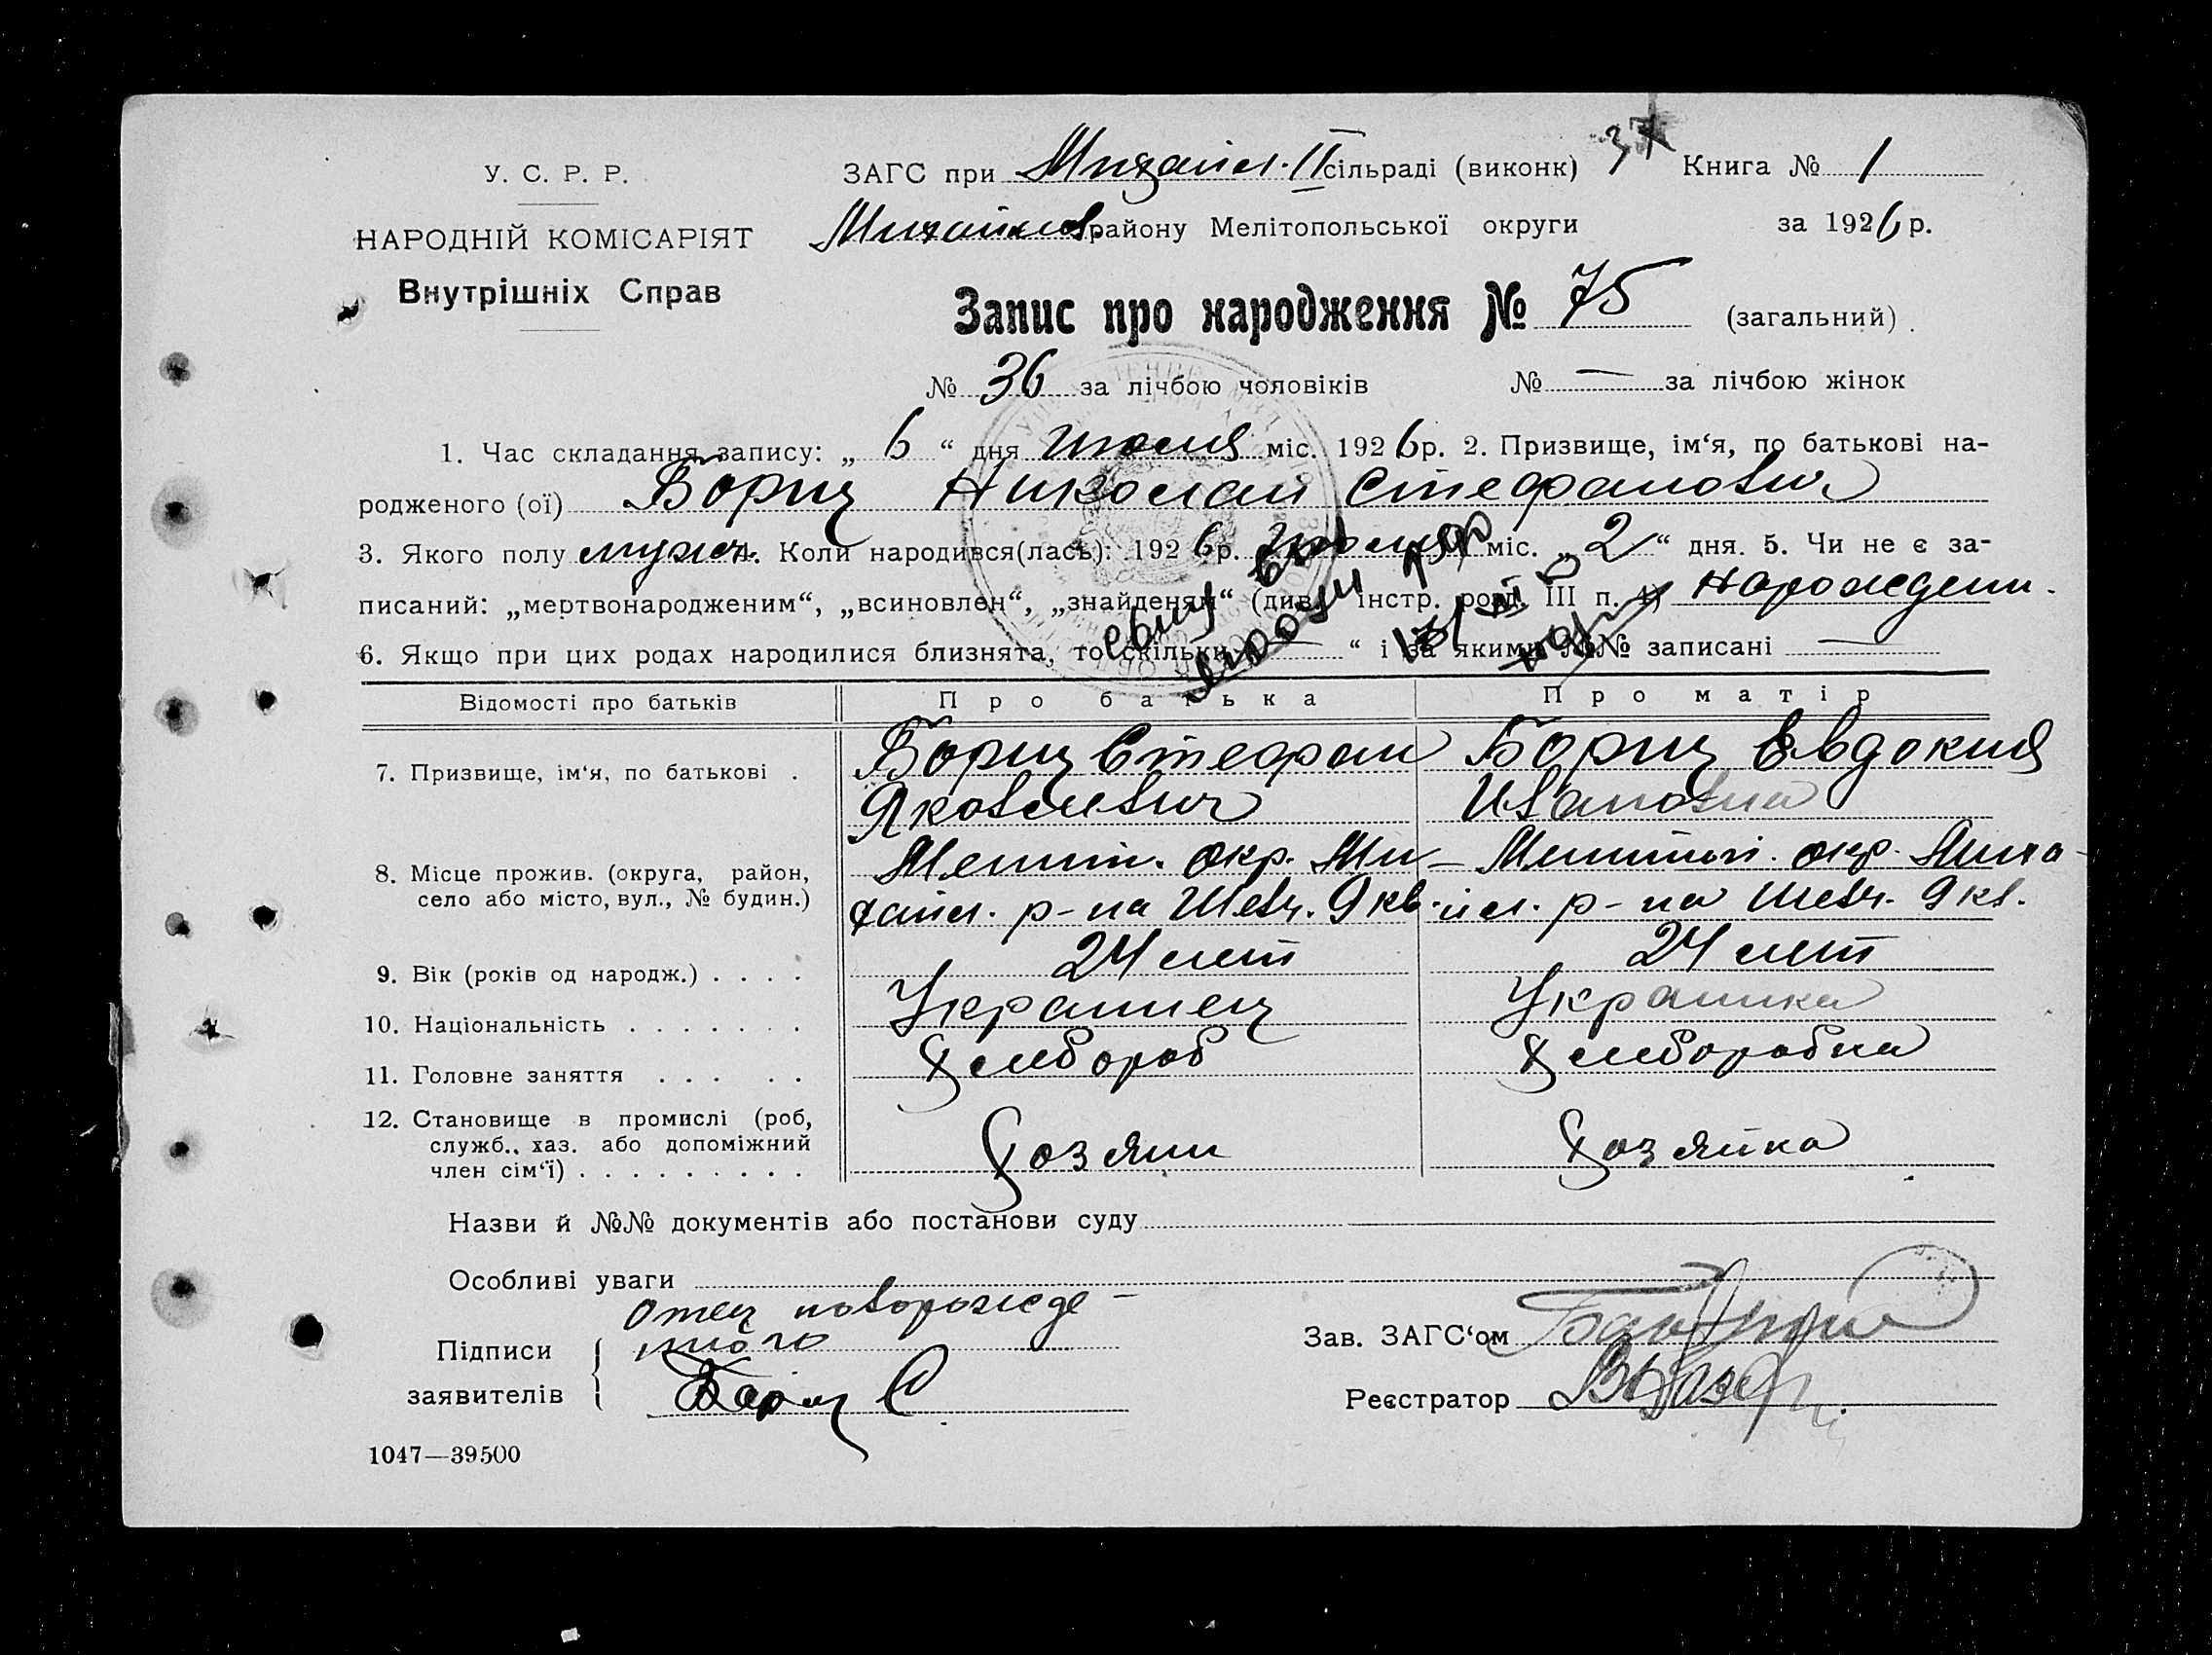 У. С. Р. Р.
НАРОДНІЙ КОМІСАРІЯТ
Внутрішніх Справ
ЗАГС при Михайл. II сільраді (виконк) 37 Книга № 1
Михайлов. району Мелітопольської округи за 1926 р.
Запис про народження № 75 (загальний)
№ 36 за лічбою чоловіків № — за лічбою жінок
1. Час складання запису: „ 6 “ дня июля міс. 1926 р. 2. Призвище, ім‘я, по батькові на-
родженого (ої) Борщ Николай Стефанович
3. Якого полу мужч. Коли народився(лась): 1926 р. июля міс. „ 2 “ дня. 5. Чи не є за-
писаний: „мертвонародженим“, „всиновлен“, „знайденям“ (див. інстр. розд. III п. 4) нарожден.
6. Якщо при цих родах народилися близнята, то скільки — “ і за якими №№ записані —
Відомості про батьків Про батька Про матір
7. Призвище, ім‘я, по батькові . Борщ Стефан Борщ Евдокия
Яковлевич Ивановна
8. Місце прожив. (округа, район, Мелит. окр. Ми- Мелитоп. окр. Миха-
село або місто, вул., № будин.) хайл. р-на Шевч. 9 кв. йл. р-на Шевч. 9 кв.
9. Вік (років од народж.) . . . . 24 лет 24 лет
10. Національність . . . . . . . Украинец Украинка
11. Головне заняття . . . . . Хлебороб Хлеборобка
12. Становище в промислі (роб,
служб., хаз. або допоміжний Хозяин Хозяйка
член сім‘ї) . . . . . . . . .
Назви й №№ документів або постанови суду
Особливі уваги
Отец новорожде-
Підписи нного Зав. ЗАГС‘ом
заявителів Борщ С Реєстратор
1047—39500